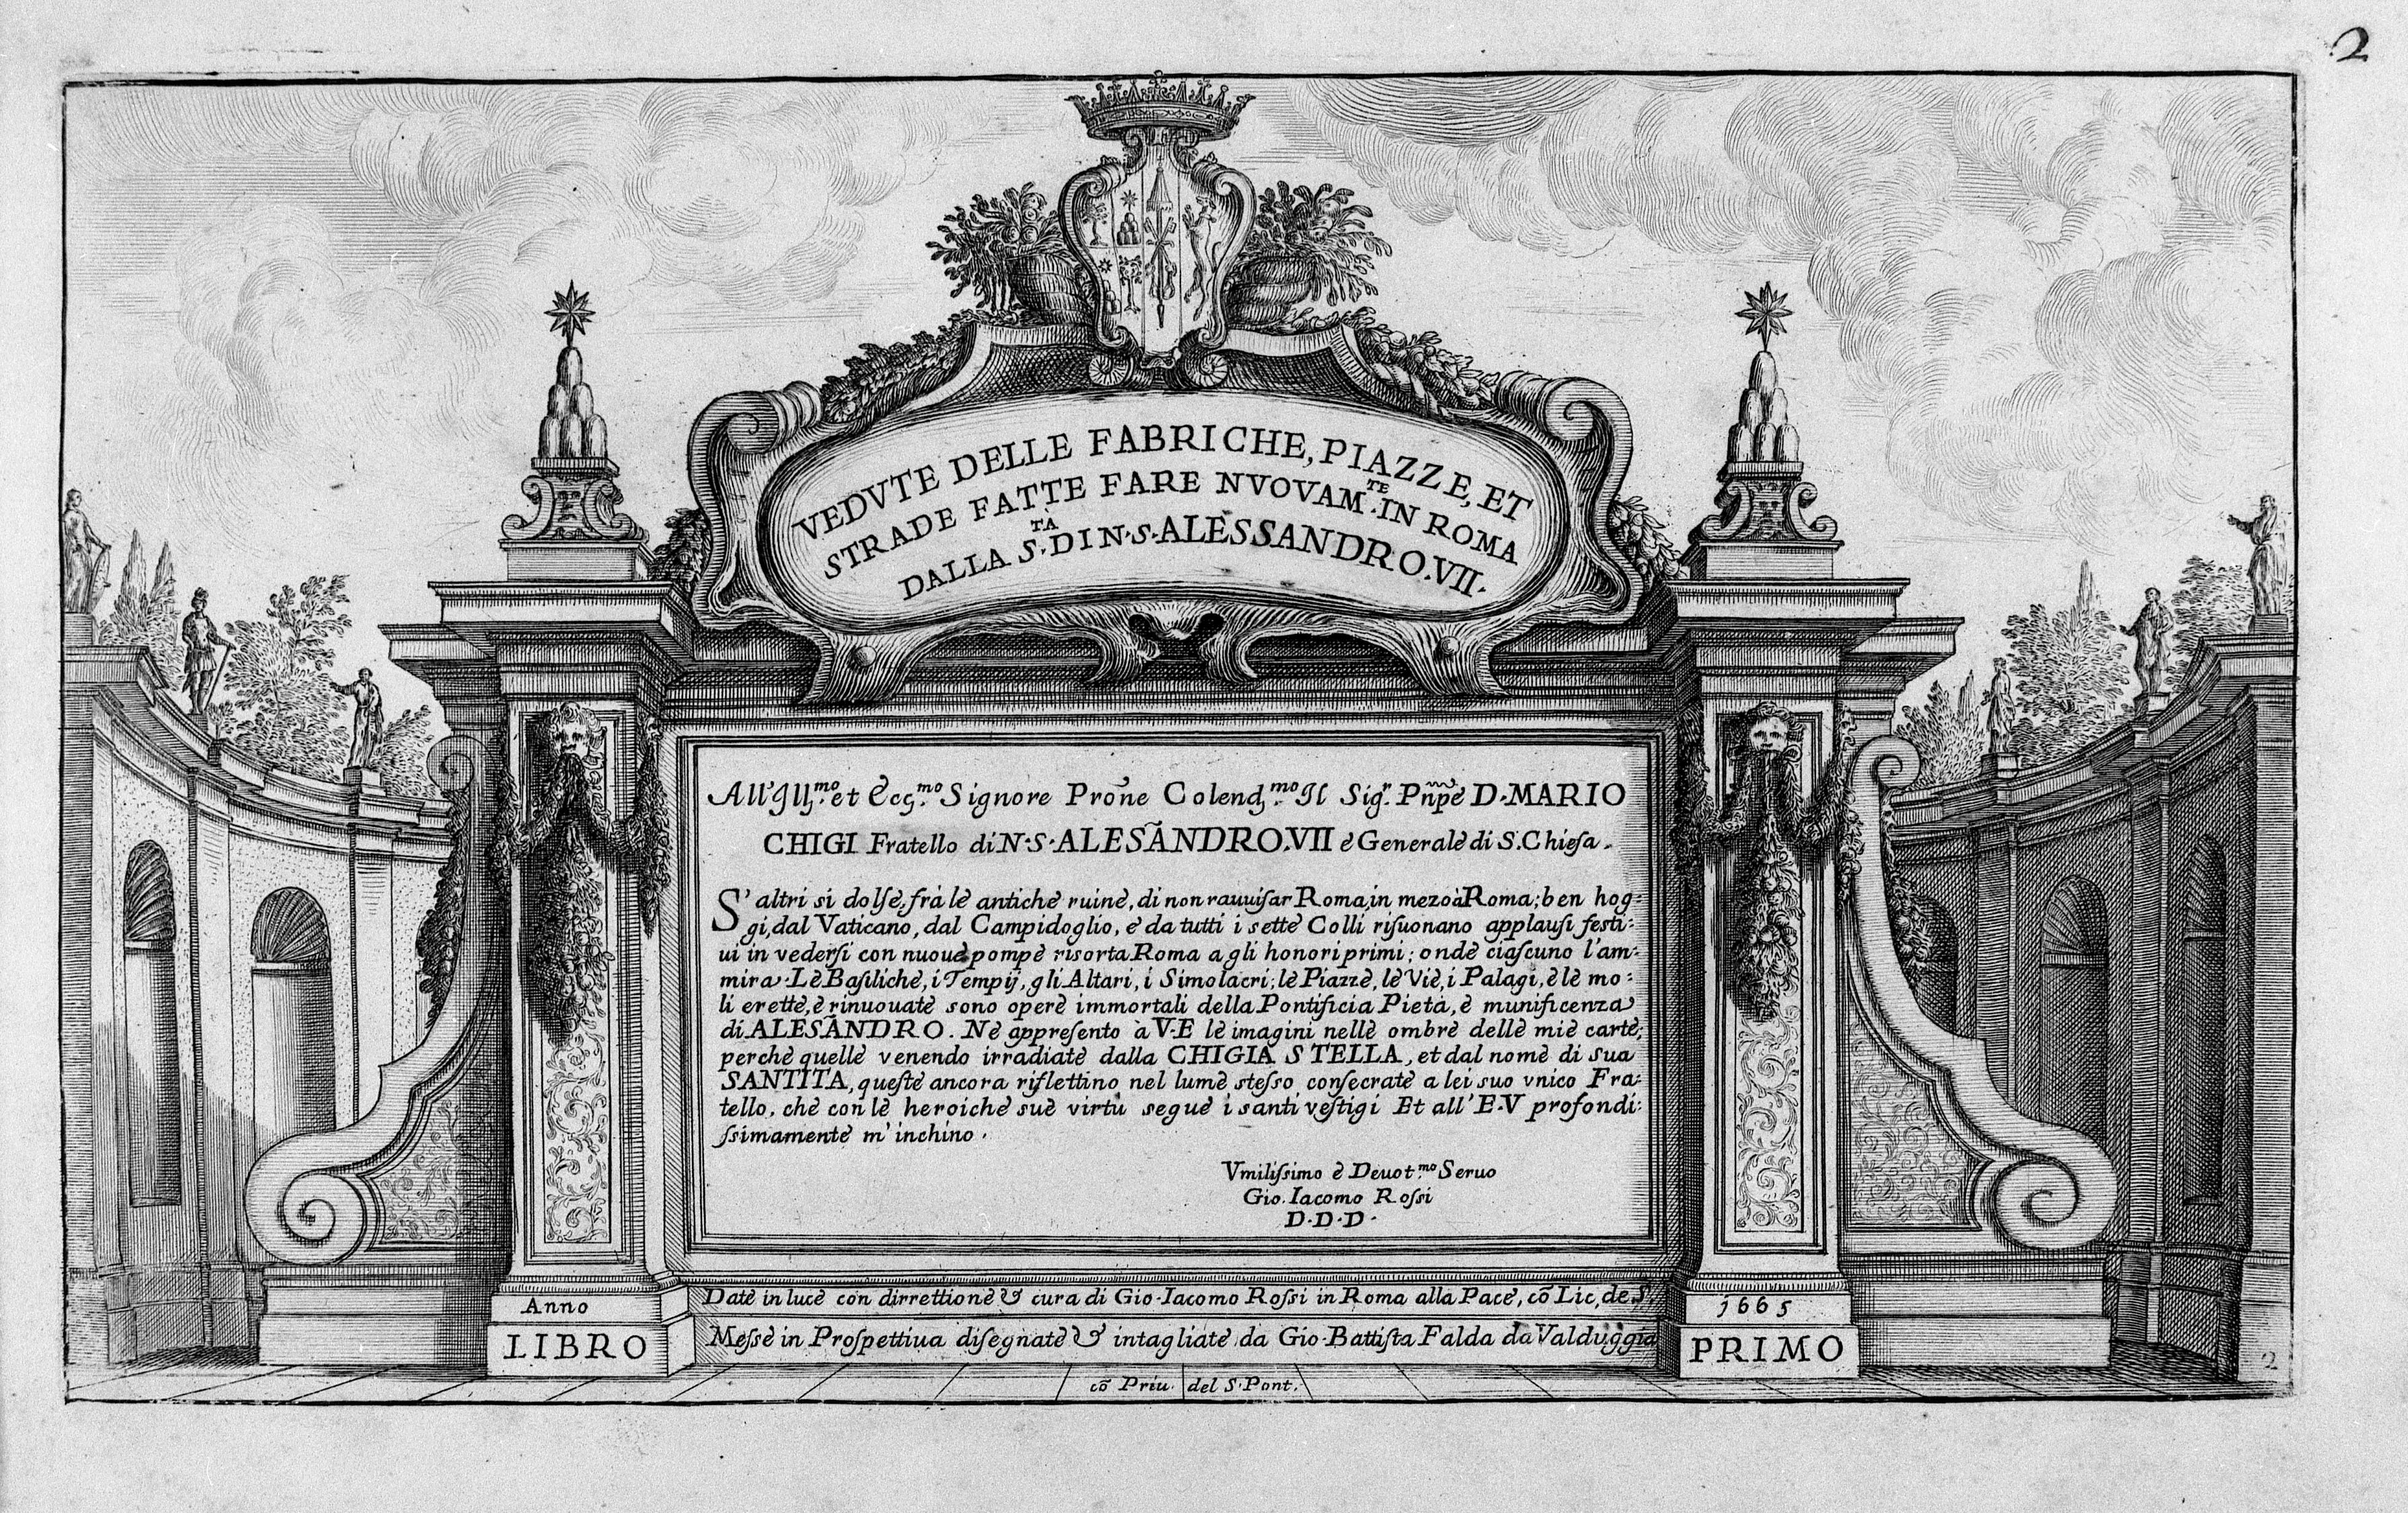 2
VEDVTE DELLE FABRICHE, PIAZZE, ET
STRADE FATTE FARE NVOVAM.TE IN ROMA
DALLA S.TÀ DI N.S. ALESSANDRO.VII.
All'Ill.mo et Ecc.mo Signore Prõne Colend.mo Il Sig.r Pñpe D. MARIO
CHIGI Fratello di N.S. ALESÃNDRO.VII è Generale di S. Chiesa.
S' altri si dolse, frà le antiche ruine, di non rauuisar Roma, in mezo à Roma; ben hog-
gi, dal Vaticano, dal Campidoglio, è da tutti i sette Colli risuonano applausi festi-
ui in vedersi con nuoue pompe risorta Roma a gli honori primi; onde ciascuno l'am-
mira. Le Basiliche, i Tempij, gli Altari, i Simolacri; le Piazze, le Vie, i Palagi, è le mo-
li erette, è rinuouate sono opere immortali della Pontificia Pietà, è munificenza
di ALESÃNDRO. Ne appresento à V.E le imagini nelle ombre delle mie carte;
perche quelle venendo irradiate dalla CHIGIA STELLA, et dal nome di sua
SANTITA, queste ancora riflettino nel lume stesso consecrate a lei suo vnico Fra-
tello, che con le heroiche sue virtù segue i santi vestigi Et all' E.V profondi-
ssimamente m'inchino.
Vmilissimo è Deuot.mo Seruo
Gio. Iacomo Rossi
D.D.D.
Anno
Date in luce con dirrettione & cura di Gio. Iacomo Rossi in Roma alla Pace, cõ Lic, de S.
1665
LIBRO
Messe in Prospettiua disegnate & intagliate da Gio. Battista Falda da Valduggia
PRIMO
2
cõ Priu. del S. Pont.